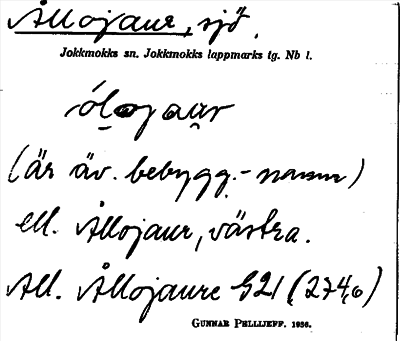 Ållojaur, sjö.
Jokkmokks sn. Jokkmokks lappmarks tg. Nb l.
ólojau̯r
(är äv. bebygg.-namn)
ell. Ållojaur, västra.
All. Ållojaure G21 (274,0)
GUNNAR PELLIJEFF. 1956.